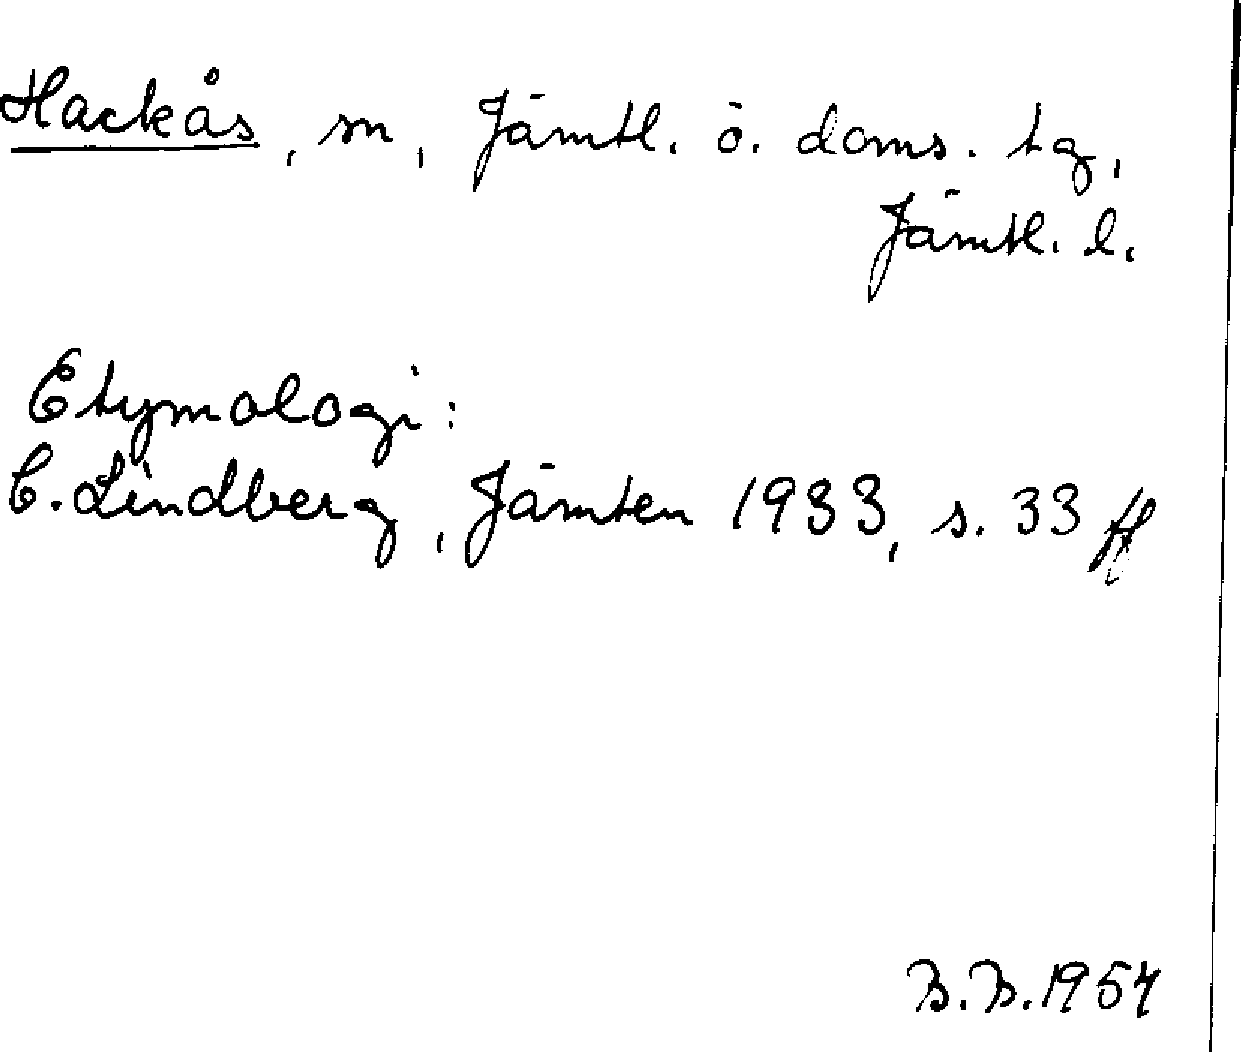 Hackås, sn, Jämtl. ö. doms. tg,
Jämtl. l.
Etymologi:
C. Lindberg, Jämten 1933, s. 33 ff
B.B.1954